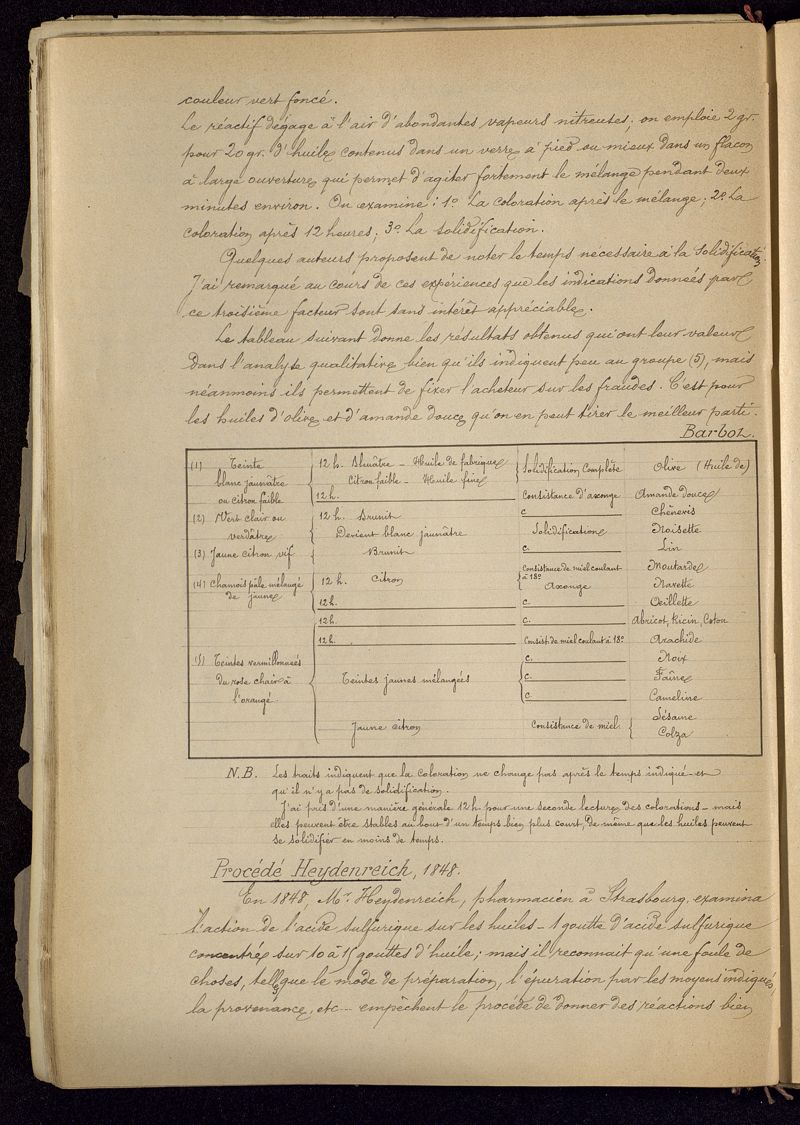 couleur vert foncé.
Le réactif dégage à l'air d'abondantes vapeurs nitreuses; on emploie 2 gr.
pour 20 gr. d'huile contenus dans un verre à pied ou mieux dans un flacon
à large ouverture qui permet d'agiter fortement le mélange pendant deux
minutes environ. On examine: 1º La coloration après le mélange; 2º La
coloration après 12 heures; 3º La solidification.
Quelques auteurs proposent de noter le temps nécessaire à la solidification
J'ai remarqué au cours de ces expériences que les indications données par
ce troisième facteur sont sans intérêt appréciable.
Le tableau suivant donne les résultats obtenus qui ont leur valeur
dans l'analyse qualitative bien qu'ils indiquent peu au groupe (5), mais
néanmoins ils permettent de fixer l'acheteur sur les fraudes. C'est pour
les huiles d'olive et d'amande douce qu'on en peut tirer le meilleur parti.
Barbot.
(1) Teinte 12 h. Bleuâtre - Huile de fabrique Solidification Complète Olive (Huile de)
blanc jaunâtre Citron faible - Huile fine
ou citron faible 12 h. Consistance d'axonge Amande douce
(2) Vert clair ou 12 h. Brunit c Chênevis
verdâtre Devient blanc jaunâtre Solidification Noisette
(3) Jaune citron vif Brunit c. Lin
(4) Chamois pâle mélangé 12 h. Citron Consistance de miel coulant à 18º Moutarde
de jaune Axonge Navette
12 h. c. Oeillette
12 h. c. Abricot, Ricin, Coton
12 h. Consist. de miel coulant à 18º Arachide
(5) Teintes vermillonnées c. Noix
du rose chair à Teintes jaunes mélangées c. Faîne
l'orangé c Cameline
Jaune citron Consistance de miel. Sésame
Colza
N.B. Les traits indiquent que la coloration ne change pas après le temps indiqué et
qu'il n'y a pas de solidification.
J'ai pris d'une manière générale 12 h. pour une seconde lecture des colorations - mais
elles peuvent être stables au bout d'un temps bien plus court, de même que les huiles peuvent
se solidifier en moins de temps.
Procédé Heydenreich, 1848.
En 1848, Mr. Heydenreich, pharmacien à Strasbourg, examina
l'action de l'acide sulfurique sur les huiles - 1 goutte d'acide sulfurique
concentré sur 10 à 15 gouttes d'huile; mais il reconnait qu'une foule de
choses, telles que le mode de préparation, l'épuration par les moyens indiqués,
la provenance, etc - empêchent le procédé de donner des réactions bien